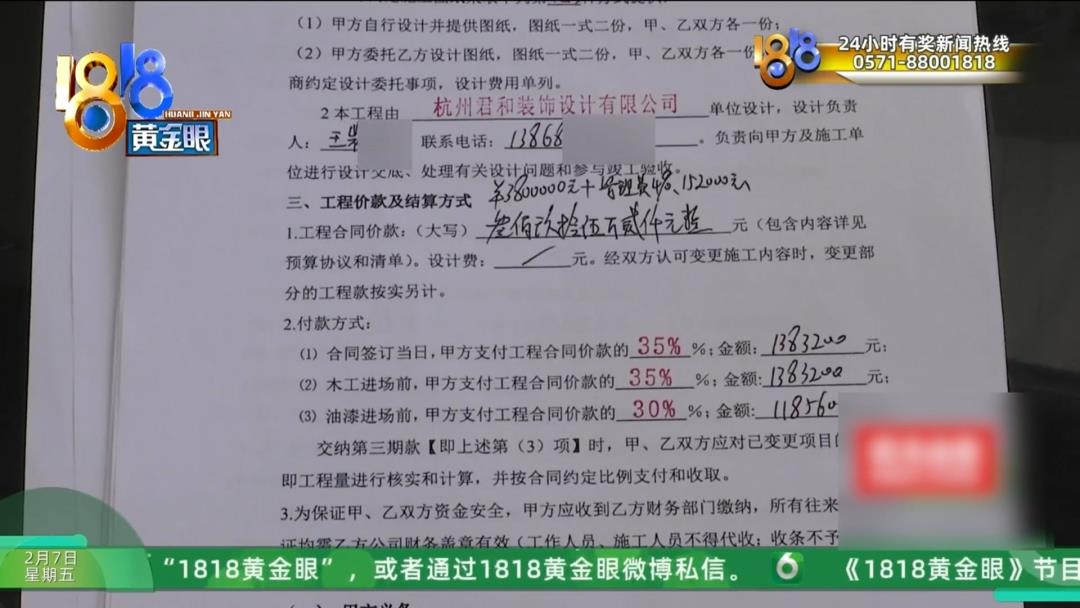 (1) 甲方自行设计并提供图纸，图纸一式二份，甲、乙双方各一份；
(2) 甲方委托乙方设计图纸，图纸一式二份，甲、乙双方各一份
商约定设计委托事项，设计费用单列。
2 本工程由 杭州君和装饰设计有限公司 单位设计，设计负责
人： 联系电话：13868 。负责向甲方及施工单
位进行设计交底、处理有关设计问题和参与竣工验收。
三、工程价款及结算方式 ¥3800000元+管理费4%、152000元
1.工程合同价款：（大写）叁佰玖拾伍万贰仟元整 元（包含内容详见
预算协议和清单）。设计费： 元。经双方认可变更施工内容时，变更部
分的工程款按实另计。
2.付款方式：
(1) 合同签订当日，甲方支付工程合同价款的 35% %；金额：1383200 元；
(2) 木工进场前，甲方支付工程合同价款的 35% %；金额：1383200 元；
(3) 油漆进场前，甲方支付工程合同价款的 30% %；金额：118560
交纳第三期款【即上述第（3）项】时，甲、乙双方应对已变更项目
即工程量进行核实和计算，并按合同约定比例支付和收取。
3.为保证甲、乙双方资金安全，甲方应收到乙方财务部门缴纳，所有往来
证均需乙方公司财务盖章有效（工作人员、施工人员不得代收；收条不予
1818
HUANG JIN YAN
黄金眼
1818
24小时有奖新闻热线
0571-88001818
2月7日
星期五
“1818黄金眼”，或者通过1818黄金眼微博私信。
6
《1818黄金眼》节目